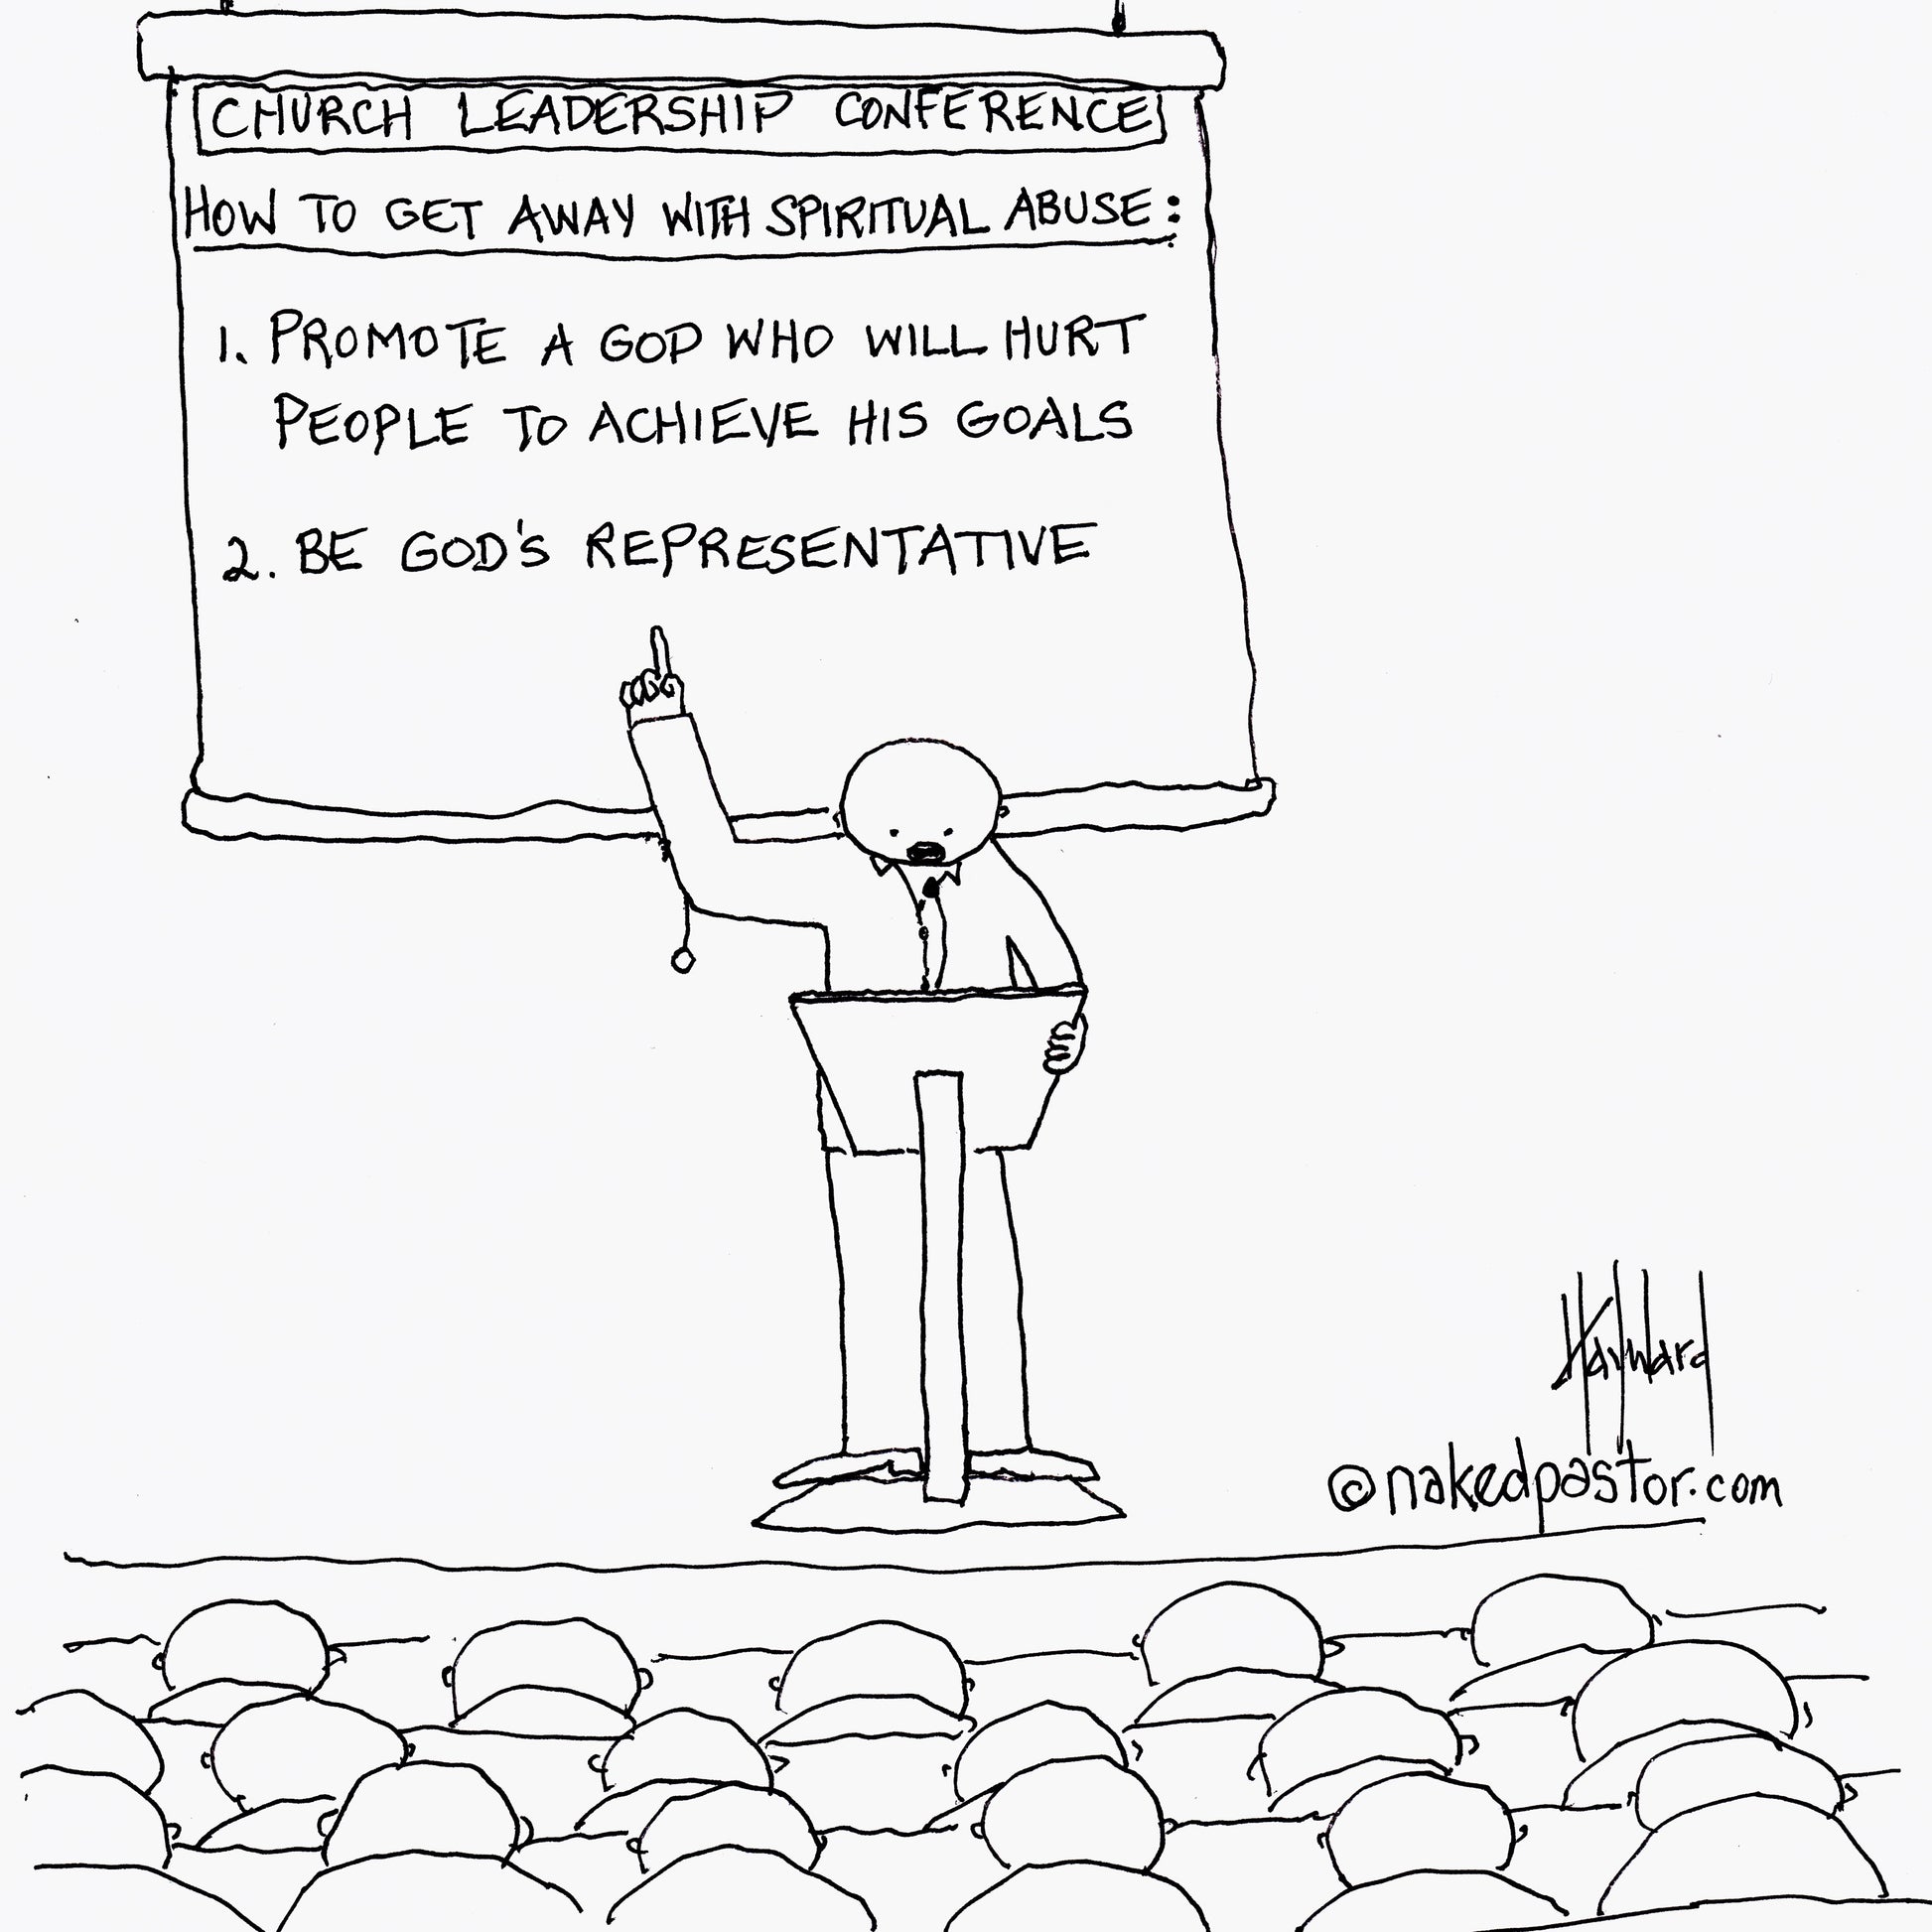 CHURCH LEADERSHIP CONFERENCE
HOW TO GET AWAY WITH SPIRITUAL ABUSE:
1. PROMOTE A GOD WHO WILL HURT
PEOPLE TO ACHIEVE HIS GOALS
2. BE GOD'S REPRESENTATIVE
Hayward
©nakedpastor.com